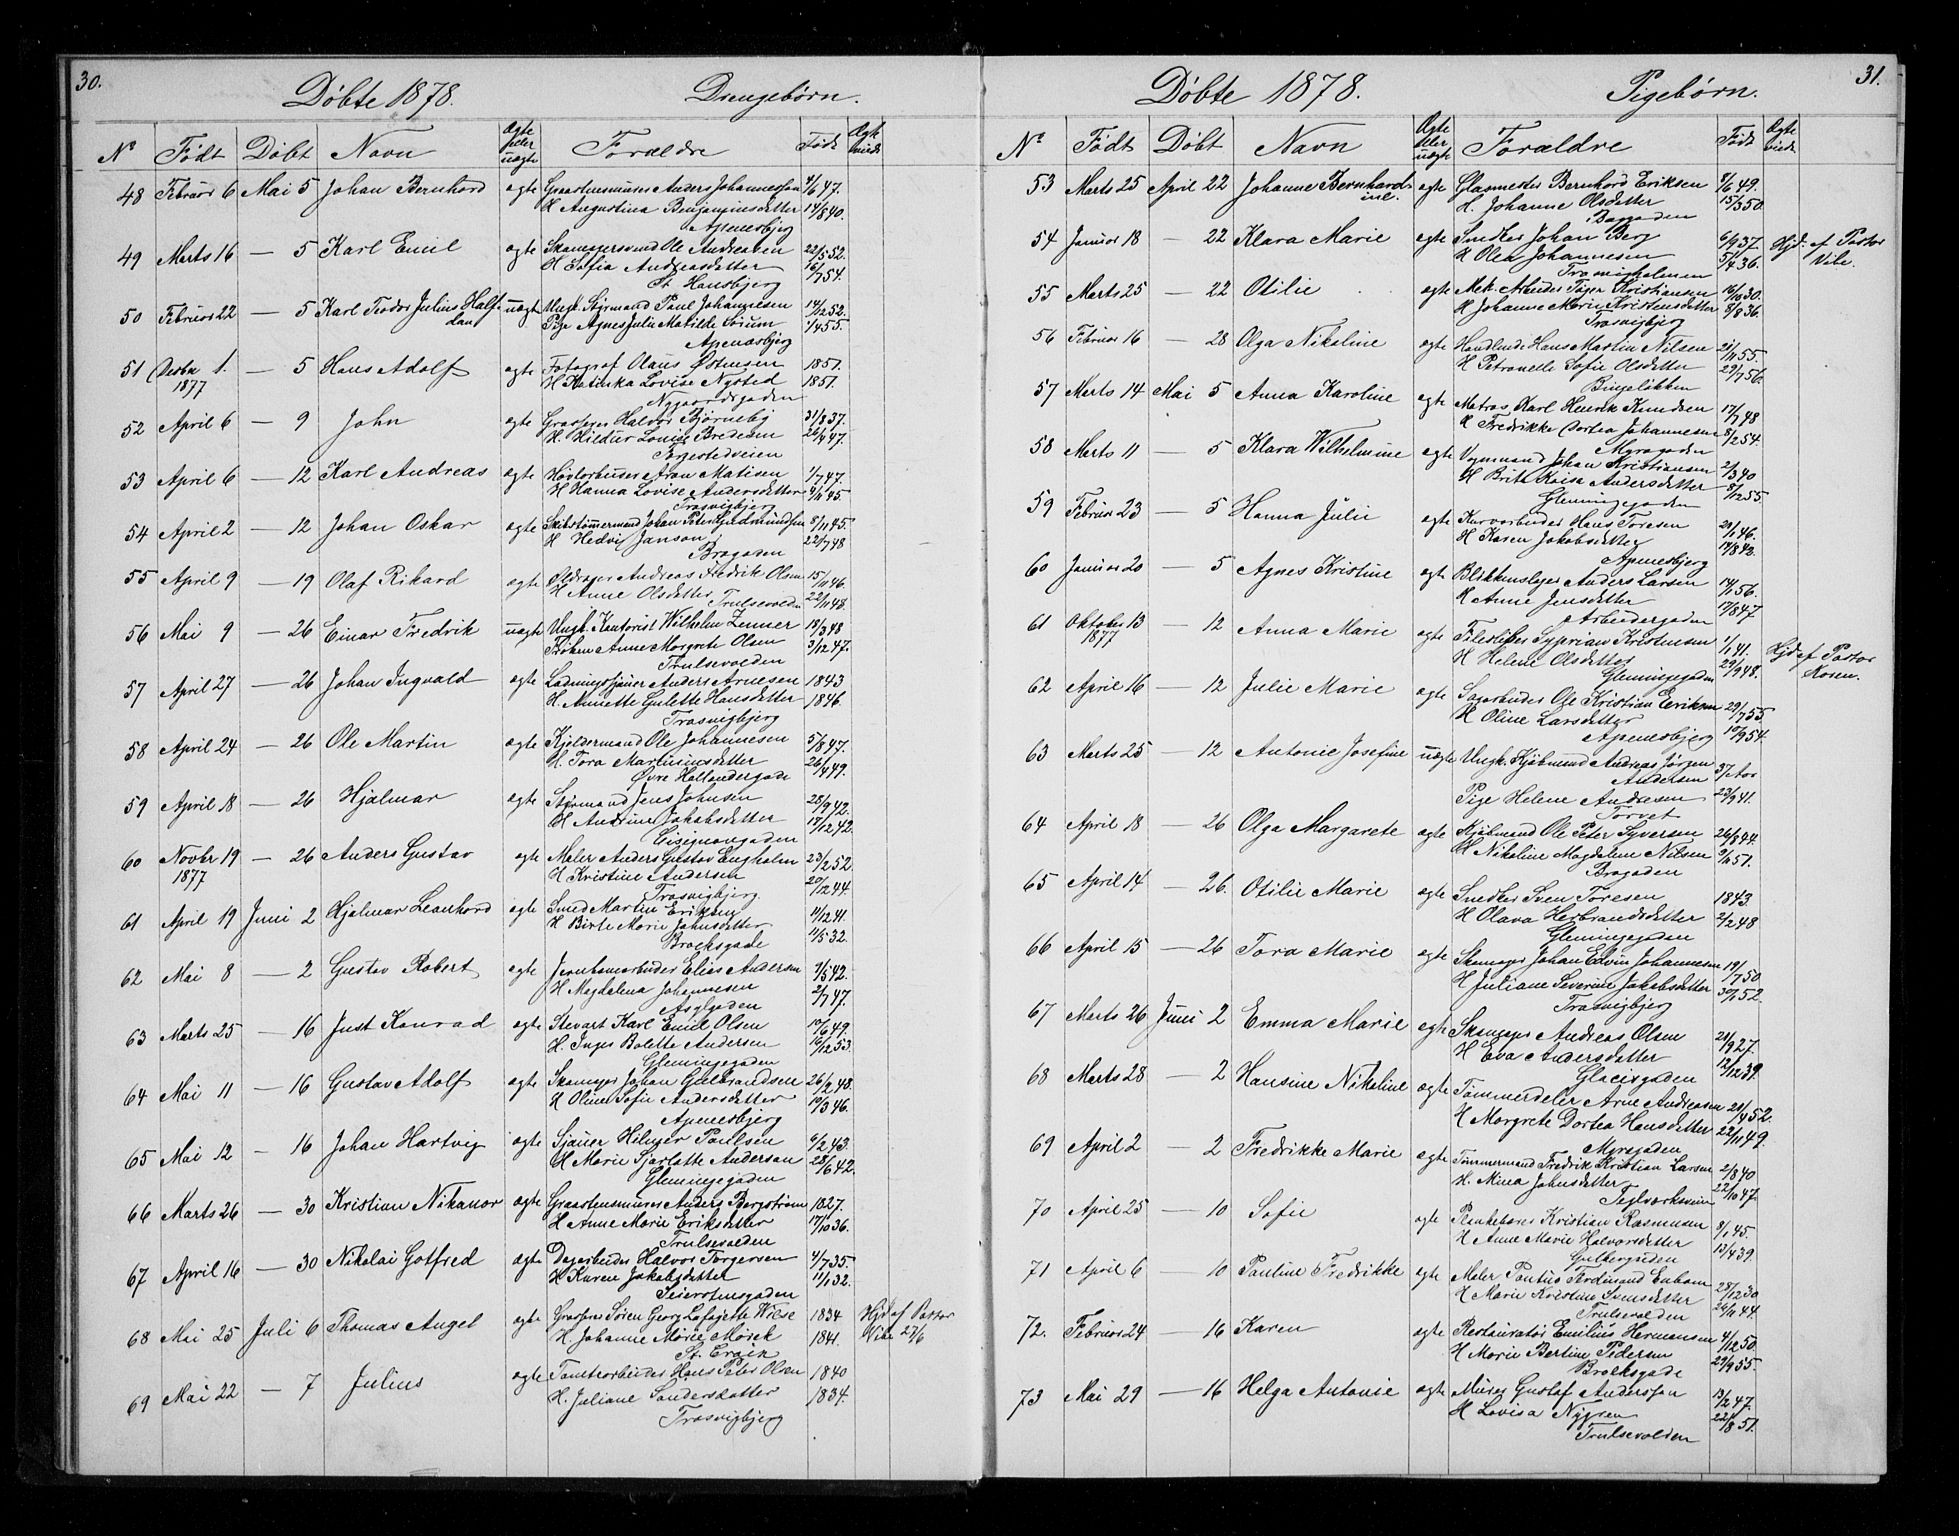 30.
Döbte 1878. Drengebörn.
No Födt Döbt Navn Ægte eller uægte Forældre Födt
48 Februar 6 Mai 5 Johan Bernhard ægte Graastensmurer Anders Johannessen 4/6 47.
H Augustina Benjaminsdatter 14/8 40.
Apenesbjerg
49 Marts 16 — 5 Karl Emil ægte Ole Andersen 22/5 52.
H Sofia Andreasdatter 16/7 54.
St Hansbjerg
50 Februar 22 — 5 Karl Teodor Julius Half- uægte Ungk. Styrmand Paul Johannesen 14/2 52.
dan Pige Agnes Julie Matilde 1/4 55.
Apenæsbjerg
51 Decbr 1. — 5 Hans Adolf ægte Fotograf Claus Østensen 1851.
1877 H Katinka Lovise Nysted 1851.
Nygaardsgaden
52 April 6 — 9 John ægte Grosserer Halvor Bjørneby 31/8 37.
H. Hildur Louise 47.
53 April 6 — 12 Karl Andreas ægte Matisen 1/7 47.
H Hanna Lovise Andersdatter 4/11 45
Trosvigbjerg
54 April 2 — 12 Johan Oskar ægte Skibstømmermand Johan Peter Gudmundsen 8/11 45.
H Hedvig Janson 22/7 48
Brogaden
55 April 9 — 19 Olaf Rikard ægte Oldrager Andreas Fredrik Olsen 15/11 46.
H Anne Olsdatter 22/11 48.
Trulsevolden
56 Mai 9 — 26 Einar Fredrik uægte Ungk. Kontorist Wilhelm Zenner 18/3 48
Frøken Anne Margrete Olsen 3/12 47.
Trulsevolden
57 April 27 — 26 Johan Ingvald ægte Ladningssjauer Anders Arnesen 1843
H. Annette Gulette Hansdatter 1846.
Trosvigbjerg
58 April 24 — 26 Ole Martin ægte Kjeldermand Ole Johannesen 5/8 47.
H. Tora Martinusdatter 26/4 49.
Øvre Hollendergade
59 April 18 — 26 Hjalmar ægte Styrmand Jens Johnsen 28/9 42.
H Andrine Jakobsdatter 17/12 42.
Cisignongaden
60 Novbr 19 — 26 Anders Gustav ægte Maler Anders Gustav Engholm 23/2 52.
1877 H Kristine Andersen 20/12 44.
Trosvigbjerg
61 April 19 Juni 2 Hjalmar Leonhard ægte Smed Martin Eriksen 4/12 41.
H Birte Marie Johnsdatter 11/5 32.
Brocksgade
62 Mai 8 — 2 Gustav Robert ægte Jernbanearbeider Elias Andersen 7/5 42.
H Magdalena Johannesen 2/7 47.
Asylgaden
63 Marts 25 — 16 Just Konrad ægte Stevart Karl Emil Olsen 10/6 49.
H. Inger Bolette Andersen 16/12 53.
Glemmegaden
64 Mai 11 — 16 Gustav Adolf ægte Skomager Johan Gulbrandsen 26/2 48.
H Oline Sofie Andersdatter 10/3 46.
Apenesbjerg
65 Mai 12 — 16 Johan Hartvig ægte Sjauer Hilmer Paulsen 6/2 43.
H Marie Sjarlotte Anderson 28/6 42.
Glemmegaden
66 Marts 26 — 30 Kristian Nikanor ægte Graastensmurer Anders Bergstrøm 1827.
H Anne Marie Eriksdatter 17/10 36.
Trulsevolden
67 April 16 — 30 Nikolai Gotfred ægte Dagarbeider Halvor Torgersen 4/7 35.
H Karen Jakobsdatter 11/1 32.
Seierstensgaden
68 Mai 25 Juli 6 Thomas Angel ægte Grosserer Sören Georg Lafayette Wiese 1834 Hjd af Pastor
H. Johanne Marie Mørch 1841. Vibe 27/6
69 Mai 22 — 7 Julius ægte Tomtearbeider Hans Peter Olsen 1840
H. Juliane 1834.
Trosvigbjerg
31.
Döbte 1878. Pigebörn.
No Födt Döbt Navn Ægte eller uægte Forældre Födt
53 Marts 25 April 22 Johanne Bernhard- ægte Glasmester Bernhard Eriksen 7/6 49.
ine. H. Johanne Olsdatter 15/3 50.
54 Januar 18 — 22 Klara Marie ægte Snedker Johan Berg 6/9 37. Hjd. af Pastor
H Olea Johannesen 5/4 36. Vibe.
Trosvigholmen
55 Marts 25 — 22 Otilie ægte Mek. Arbeider Kristiansen 16/10 30.
H Johanne Marie Kristensdatter 8/8 36.
Trosvigbjerg
56 Februar 16 — 28 Olga Nikoline ægte Handlende Hans Martin Nilsen 21/11 55.
H Petronelle Sofie Olsdatter 29/7 56.
57 Marts 14 Mai 5 Anna Karoline ægte Matros Karl Henrik Knudsen 17/7 48
H Fredrikke Dortea Johannesen 8/2 54.
Myragaden
58 Marts 11 — 5 Klara Wilhelmine ægte Vognmand Johan Kristiansen 2/3 40
H Brita Kaisa Andersdatter 8/12 55
Glemmegaden
59 Februar 23 — 5 Hanna Julie ægte Hans Toresen 46.
H Karen Jakobsdatter 14/8 42.
Apenesbjerg
60 Januar 20 — 5 Agnes Kristine ægte Blikkenslager Anders Larsen 14/1 56.
H Anne Jensdatter 17/8 47
Arbeidergaden
61 Oktober 13 — 12 Anna Marie ægte Syprian Kristensen 1/1 41. Hjd af Pastor
1877 H Helene Olsdatter 29/9 48. Rosen.
Glemmegaden
62 April 16 — 12 Julie Marie ægte Sagarbeider Ole Kristian Eriksen 29/7 55.
H Oline Larsdatter 10/9 54.
Apenesbjerg
63 Marts 25 — 12 Antonie Josefine uægte Ungk. Kjøbmand Andreas Jörgen 37 Aar
Andersen
Pige Helene Andresen 23/9 41.
Torvet
64 April 18 — 26 Olga Margarete ægte Kjøbmand Ole Peter Syversen 26/8 44.
H Nikoline Magdalene Nilsen 9/11 51.
Brogaden
65 April 14 — 26. Otilie Marie ægte Snedker Sven Toresen 1843.
H Olava Herbrandsdatter 2/2 48
Glemmegaden
66 April 15 — 26 Tora Marie ægte Skomager Johan Edvin Johannesen 19/7 50.
H Juliane Severine Jakobsdatter 30/1 52.
Trosvigbjerg
67 Marts 26 Juni 2 Emma Marie ægte Skomager Andreas Olsen 21/9 27.
H Eva Andersdatter 12/12 39.
Glacisgaden
68 Marts 28 — 2 Hansine Nikoline ægte Tømmerdeler Arne Andreasen 21/4 52.
H Margrete Dortea Hansdatter 22/11 49.
Myragaden
69 April 2 — 2 Fredrikke Marie ægte Tømmermand Fredrik Kristian Larsen 2/8 40
H. Mina Johnsdatter 22/10 47.
Teglverksveien
70 April 25 — 10 Sofie ægte Plankebærer Kristian Rasmusen 8/1 45.
H Anne Marie Halvorsdatter 13/4 39.
71 April 6 — 10 Pauline Fredrikke ægte Maler Pontus Ferdinand Enbom 28/12 30
H Marie Kristine Svensdatter 26/11 44.
Trulsevolden
72. Februar 24 — 16 Karen ægte Restauratør Emilius Hermansen 4/12 50.
H Marie Bertine Pedersen 29/9 55.
Brocksgade
73 Mai 29 — 16 Helga Antonie ægte Murer Gustaf Andersson 13/2 47.
H Lovisa Nygren 22/8 51.
Trulsevolden